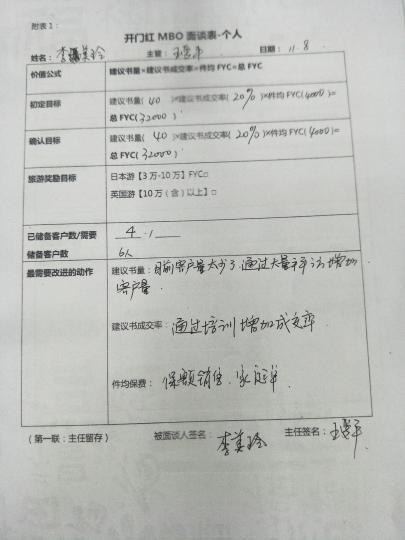 附表1：
开门红 MBO 面谈表-个人
姓名：李美玲 主管： 日期：11.8
价值公式 建议书量×建议书成交率×件均FYC=总FYC
初定目标 建议书量(40)×建议书成交率(20%)×件均FYC(4000)=
总FYC(32000)
确认目标 建议书量(40)×建议书成交率(20%)×件均FYC(4000)=
总FYC(32000)
旅游奖励目标 日本游【3万-10万】FYC□
英国游【10万（含）以上】□
已储备客户数/需要 4 /
储备客户数 6人
最需要改进的动作 建议书量：目前客户量太少了,通过大量 增加
客户量.
建议书成交率：通过培训增加成交率
件均保费：保额销售.
（第一联：主任留存） 被面谈人签名：李美玲 主任签名：